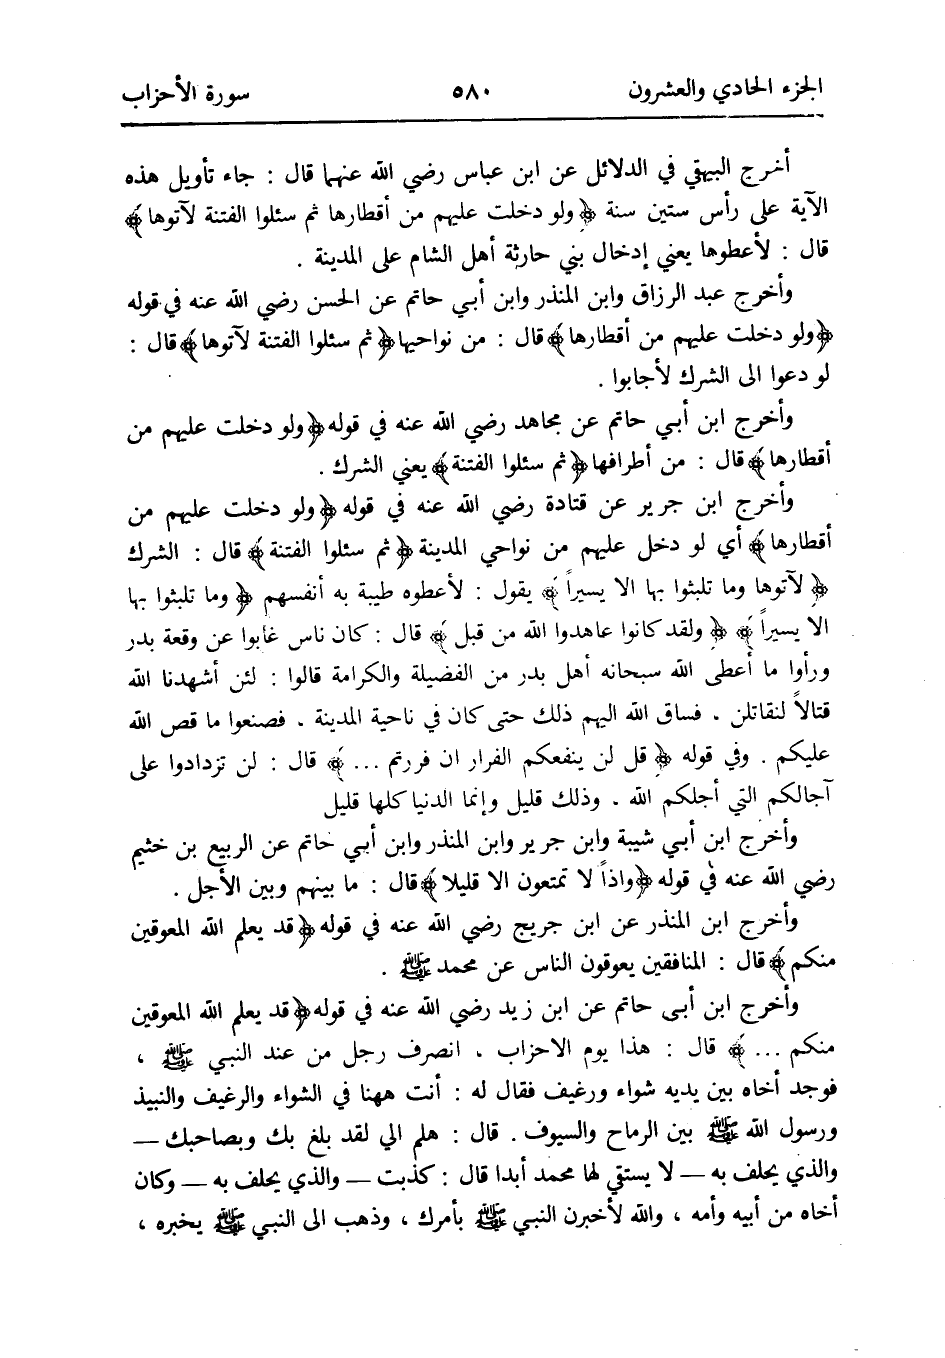 الجزء الحادي والعشرون ٥٨٠ سورة الأحزاب
أخرج البيهقي في الدلائل عن ابن عباس رضي الله عنهما قال : جاء تأويل هذه
الآية على رأس ستين سنة ﴿ ولو دخلت عليهم من أقطارها ثم سئلوا الفتنة لآتوها ﴾
قال : لأعطوها يعني إدخال بني حارثة أهل الشام على المدينة .
وأخرج عبد الرزاق وابن المنذر وابن أبي حاتم عن الحسن رضي الله عنه في قوله
﴿ ولو دخلت عليهم من أقطارها ﴾ قال : من نواحيها ﴿ ثم سئلوا الفتنة لآتوها ﴾ قال :
لو دعوا الى الشرك لأجابوا .
وأخرج ابن أبي حاتم عن مجاهد رضي الله عنه في قوله ﴿ ولو دخلت عليهم من
أقطارها ﴾ قال : من أطرافها ﴿ ثم سئلوا الفتنة ﴾ يعني الشرك .
وأخرج ابن جرير عن قتادة رضي الله عنه في قوله ﴿ ولو دخلت عليهم من
أقطارها ﴾ أي لو دخل عليهم من نواحي المدينة ﴿ ثم سئلوا الفتنة ﴾ قال : الشرك
﴿ لآتوها وما تلبثوا بها الا يسيراً ﴾ يقول : لأعطوه طيبة به أنفسهم ﴿ وما تلبثوا بها
الا يسيراً ﴾ ﴿ ولقد كانوا عاهدوا الله من قبل ﴾ قال : كان ناس غابوا عن وقعة بدر
ورأوا ما أعطى الله سبحانه أهل بدر من الفضيلة والكرامة قالوا : لئن أشهدنا الله
قتالاً لنقاتلن . فساق الله اليهم ذلك حتى كان في ناحية المدينة . فصنعوا ما قص الله
عليكم . وفي قوله ﴿ قل لن ينفعكم الفرار ان فررتم ... ﴾ قال : لن تزدادوا على
آجالكم التي أجلكم الله . وذلك قليل وإنما الدنيا كلها قليل
وأخرج ابن أبي شيبة وابن جرير وابن المنذر وابن أبي حاتم عن الربيع بن خثيم
رضي الله عنه في قوله ﴿ واذاً لا تمتعون الا قليلا ﴾ قال : ما بينهم وبين الأجل .
وأخرج ابن المنذر عن ابن جريج رضي الله عنه في قوله ﴿ قد يعلم الله المعوقين
منكم ﴾ قال : المنافقين يعوقون الناس عن محمد ﷺ .
وأخرج ابن أبى حاتم عن ابن زيد رضي الله عنه في قوله ﴿ قد يعلم الله المعوقين
منكم ... ﴾ قال : هذا يوم الاحزاب . انصرف رجل من عند النبي ﷺ ،
فوجد أخاه بين يديه شواء ورغيف فقال له : أنت ههنا في الشواء والرغيف والنبيذ
ورسول الله ﷺ بين الرماح والسيوف . قال : هلم الي لقد بلغ بك وبصاحبك —
والذي يحلف به — لا يستقي لها محمد أبدا قال : كذبت — والذي يحلف به — وكان
أخاه من أبيه وأمه ، والله لأخبرن النبي ﷺ بأمرك ، وذهب الى النبي ﷺ يخبره ،